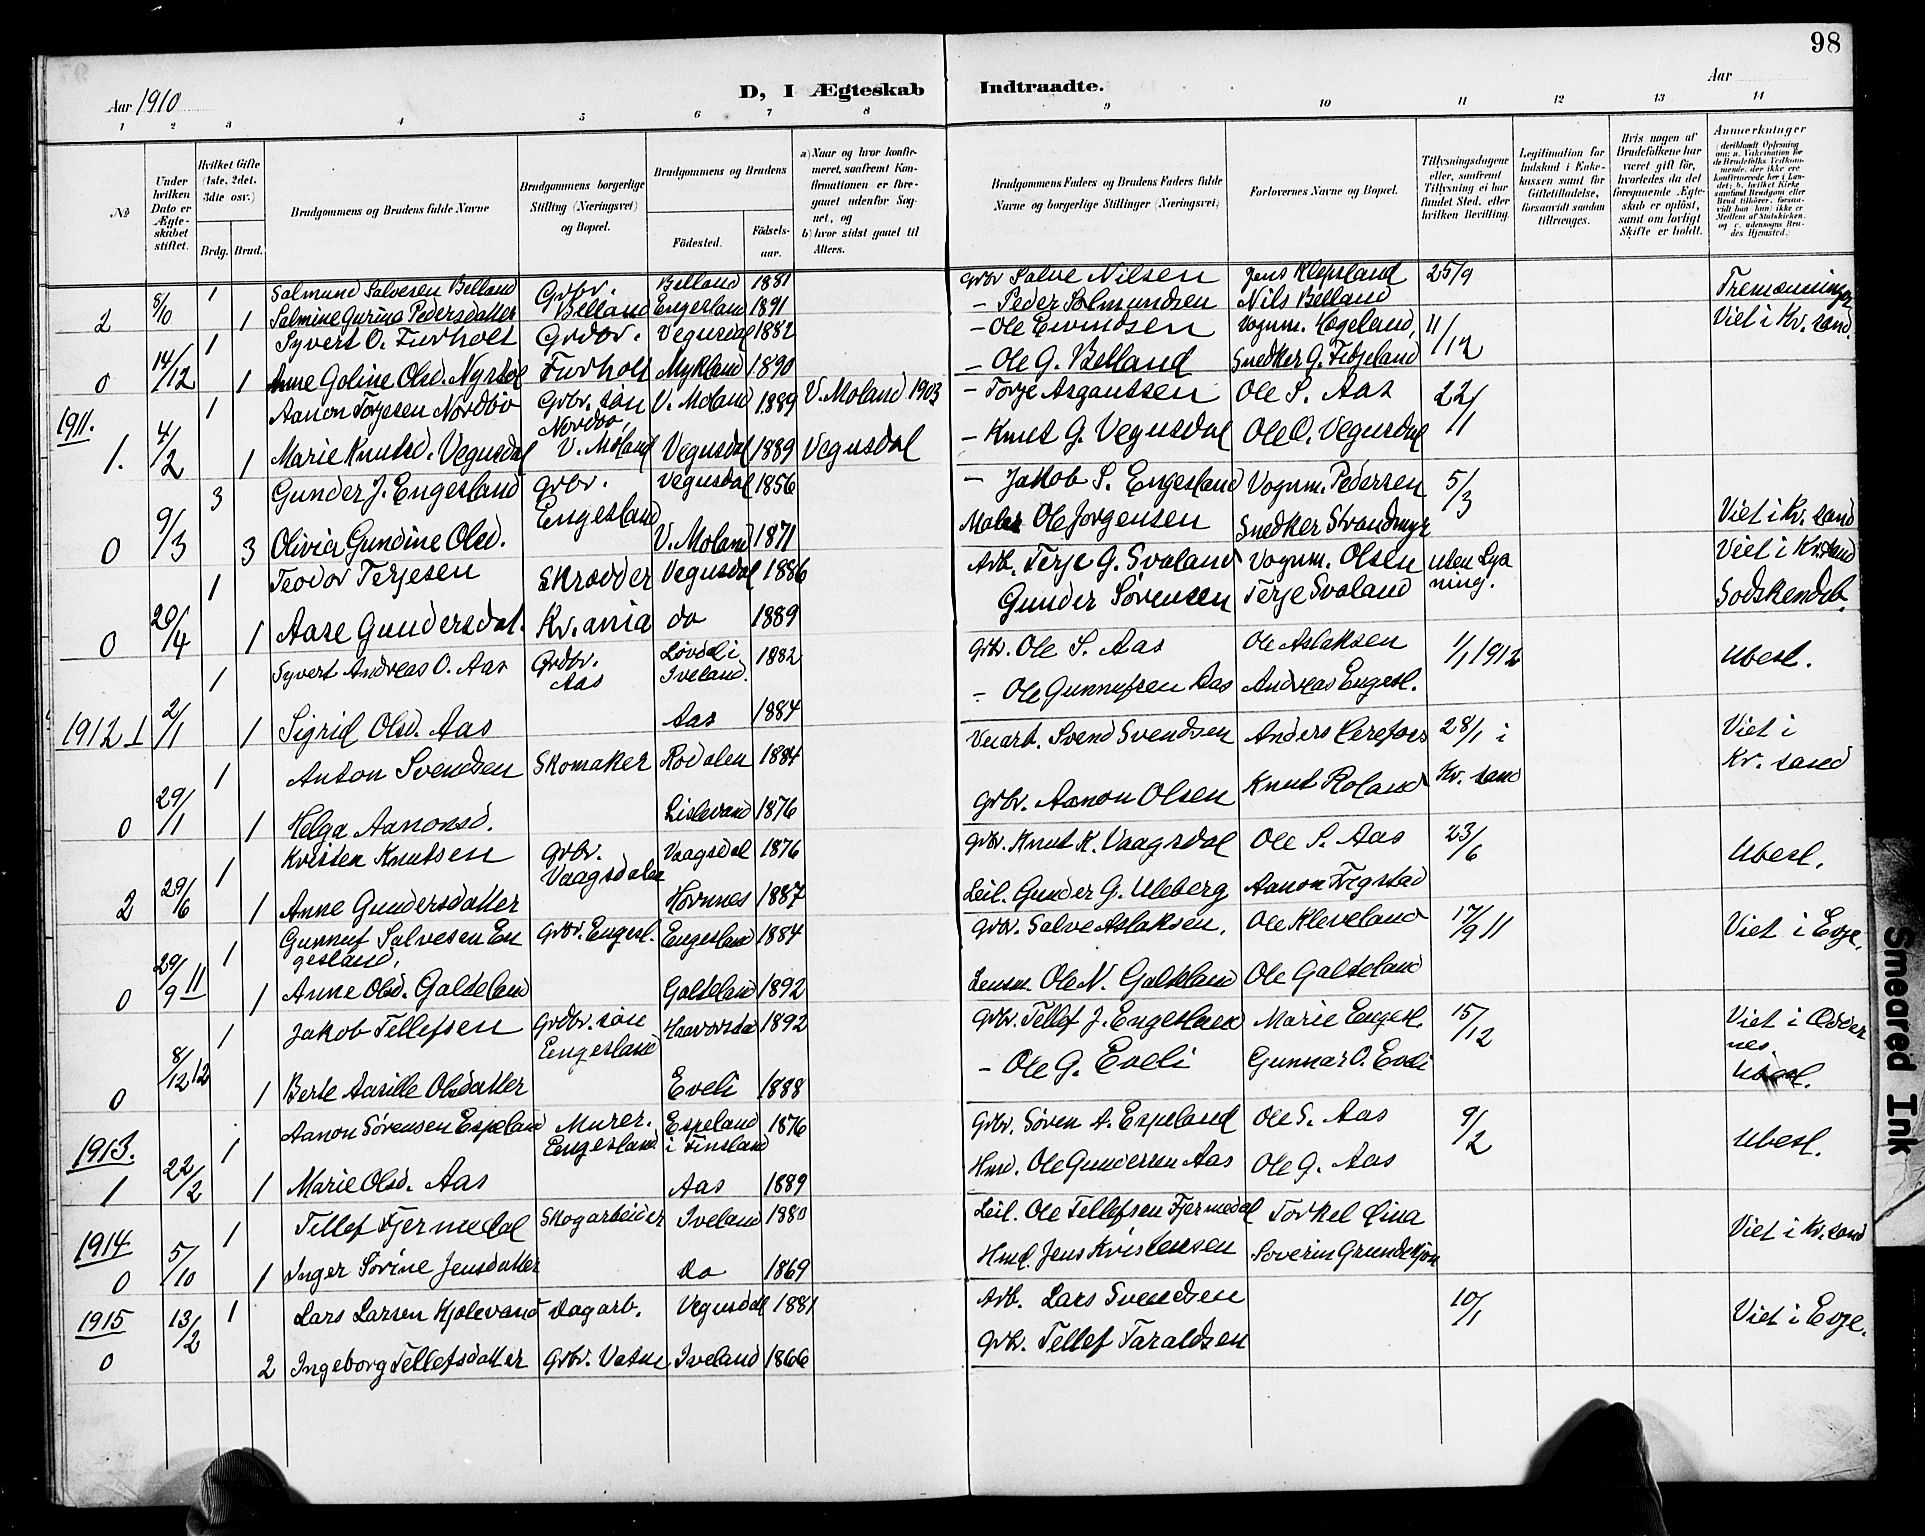 98
Aar 1910
D, I Ægteskab Indtraadte.
Aar
1 2 3 4 5 6 7 8 9 10 11 12 13 14
No
Under hvilken Dato er Ægteskabet stiftet.
Hvilket Gifte (1ste, 2det, 3die osv.)
Brdg. Brud.
Brudgommens og Brudens fulde Navne
Brudgommens borgerlige Stilling (Næringsvei) og Bopæl.
Brudgommens og Brudens
Födested.
Födselsaar.
a) Naar og hvor konfirmeret, samt om Konfirmationen er foregaaet udenfor Sognet, og
b) hvor sidst gaaet til Alters.
Brudgommens Faders og Brudens Faders fulde Navne og borgerlige Stillinger (Næringsvei)
Forlovernes Navne og Bopæl.
Tillysningsdagene eller, saafremt Tillysning ei har fundet Sted, efter hvilken Bevilling.
Legitimation for Indskud i Enkekassen samt for Giftetilladelse, forsaavidt saadan tiltrænges.
Hvis nogen af Brudefolkene har været gift för, hvorledes da det foregaaende Ægteskab er oplöst, samt om lovligt Skifte er holdt.
Anmerkninger
Salmund Salvesen Belland Grbr. Belland 1881 Grbr Salve Nilsen Jens Klepsland 25/9 Tremenninger
2 8/10 1 1 Salmine Gurina Pedersdatter Belland Engesland 1891 - Peder Salmundsen Nils Belland
Syvert O. Furholt Grdbr. Vegusdal 1882 - Ole Eivindsen Vognm. Hægeland, 11/12 Viet i Kr. sand
0 14/12 1 1 Anne Goline Olsd. Nyrdal Furholt Mykland 1890 - Ole G. Belland Snedker G. Fidjeland
1911. 1 Aanon Torjesen Nordbø Grbr. søn Nordbø, V. Moland V. Moland 1889 V. Moland 1903 - Torje Asgautsen Ole S. Aas 22/1
1. 4/2 1 Marie Knutsd. Vegusdal Vegusdal 1889 Vegusdal - Knut G. Vegusdal Ole O. Vegusdal
3 Gunder J. Engesland Grbr. Engesland Vegusdal 1856 - Jakob S. Engesland Vognm. Pedersen 5/3
0 9/3 3 Olivia Gundine Olsd. V. Moland 1871 Maler Ole Jorgensen Snedker Strandmyr Viet i Kr. sand
1 Teodor Terjesen Skrædder Vegusdal 1886 Arb. Terje G. Svaland Vognm. Olsen uten Lysning. Viet i Kr. sand
0 20/4 1 Aase Gundersdat. Kr.ania do 1889 Gunder Sørensen Terje Svaland Sødskendeb.
1 Syvert Andreas O. Aas Grdbr. Aas Løvdal i Iveland. 1882 Grbr. Ole S. Aas Ole Aslaksen 1/1 1912 Ubesl.
1912 1 2/1 1 Sigrid Olsd. Aas Aas 1884 - Ole Gunnufsen Aas Andreas Engesl.
1 Anton Svendsen Skomaker Rodalen 1884 Veiarb. Svend Svendsen Anders Kerefors 28/1 i Kr. sand Viet i Kr. sand
0 29/1 1 Helga Aanonsd. Lislevand 1876 Grbr. Aanon Olsen Knut Roland
1 Kristen Knutsen Grbr. Vaagsdalen Vaagsdal 1876 Grbr. Knut K. Vaagsdal Ole S. Aas 23/6 Ubesl.
2 29/6 1 Anne Gundersdatter Hornnes 1887 Leil. Gunder G. Uleberg Aanon Frigstad
1 Gunnuf Salvesen Engesland, Grbr. Engesl. Engesland 1884 Grbr. Salve Aslaksen. Ole Kleveland 17/9 11 Viet i Evje.
0 29/9 11 1 Anne Olsd. Galteland Galteland 1892 Lensm. Ole N. Galteland Ole Galteland
1 Jakob Tellefsen Grdbr. søn Engesland Haavorsdal 1892 Grbr. Tellef J. Engesland Marie Engesl. 15/12 Viet i Oddernes.
0 8/12 12 1 Berte Aasille Olsdatter Eveli 1888 - Ole G. Eveli Gunnar O. Eveli Ubesl.
1913. 1 Aanon Sørensen Espeland Murer. Engesland Espeland i Finsland 1876 Grbr. Søren A. Espeland Ole S. Aas 9/2 Ubesl.
1 22/2 1 Marie Olsd. Aas Aas 1889 Hmd. Ole Gundersen Aas Ole G. Aas
1914 1 Tellef Fjermedal Skogarbeider Iveland 1880 Leil. Ole Tellefsen Fjermedal Torkel Lina Viet i Kr. sand
0 5/10 1 Inger Sørine Jensdatter do 1869 Hmd. Jens Kristensen Soverin Grundekjøn
1915 13/2 1 Lars Larsen Kjolevand Dagarb. Vegusdal 1881 Arb. Lars Svendsen 10/1 Viet i Evje.
0 2 Ingeborg Tellefsdatter Grbr. Vatne Iveland 1866 Grbr. Tellef Taraldsen
Smeared Ink